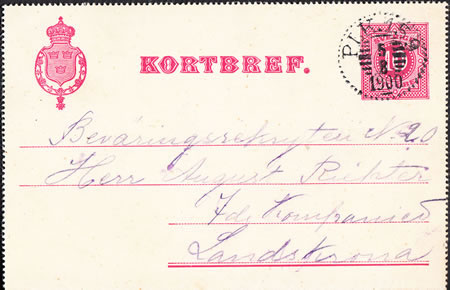 KORTBREF.
5
8
1900
Beväringsrekryten No 20
Herr August Richter
7de Kompaniet
Landskrona